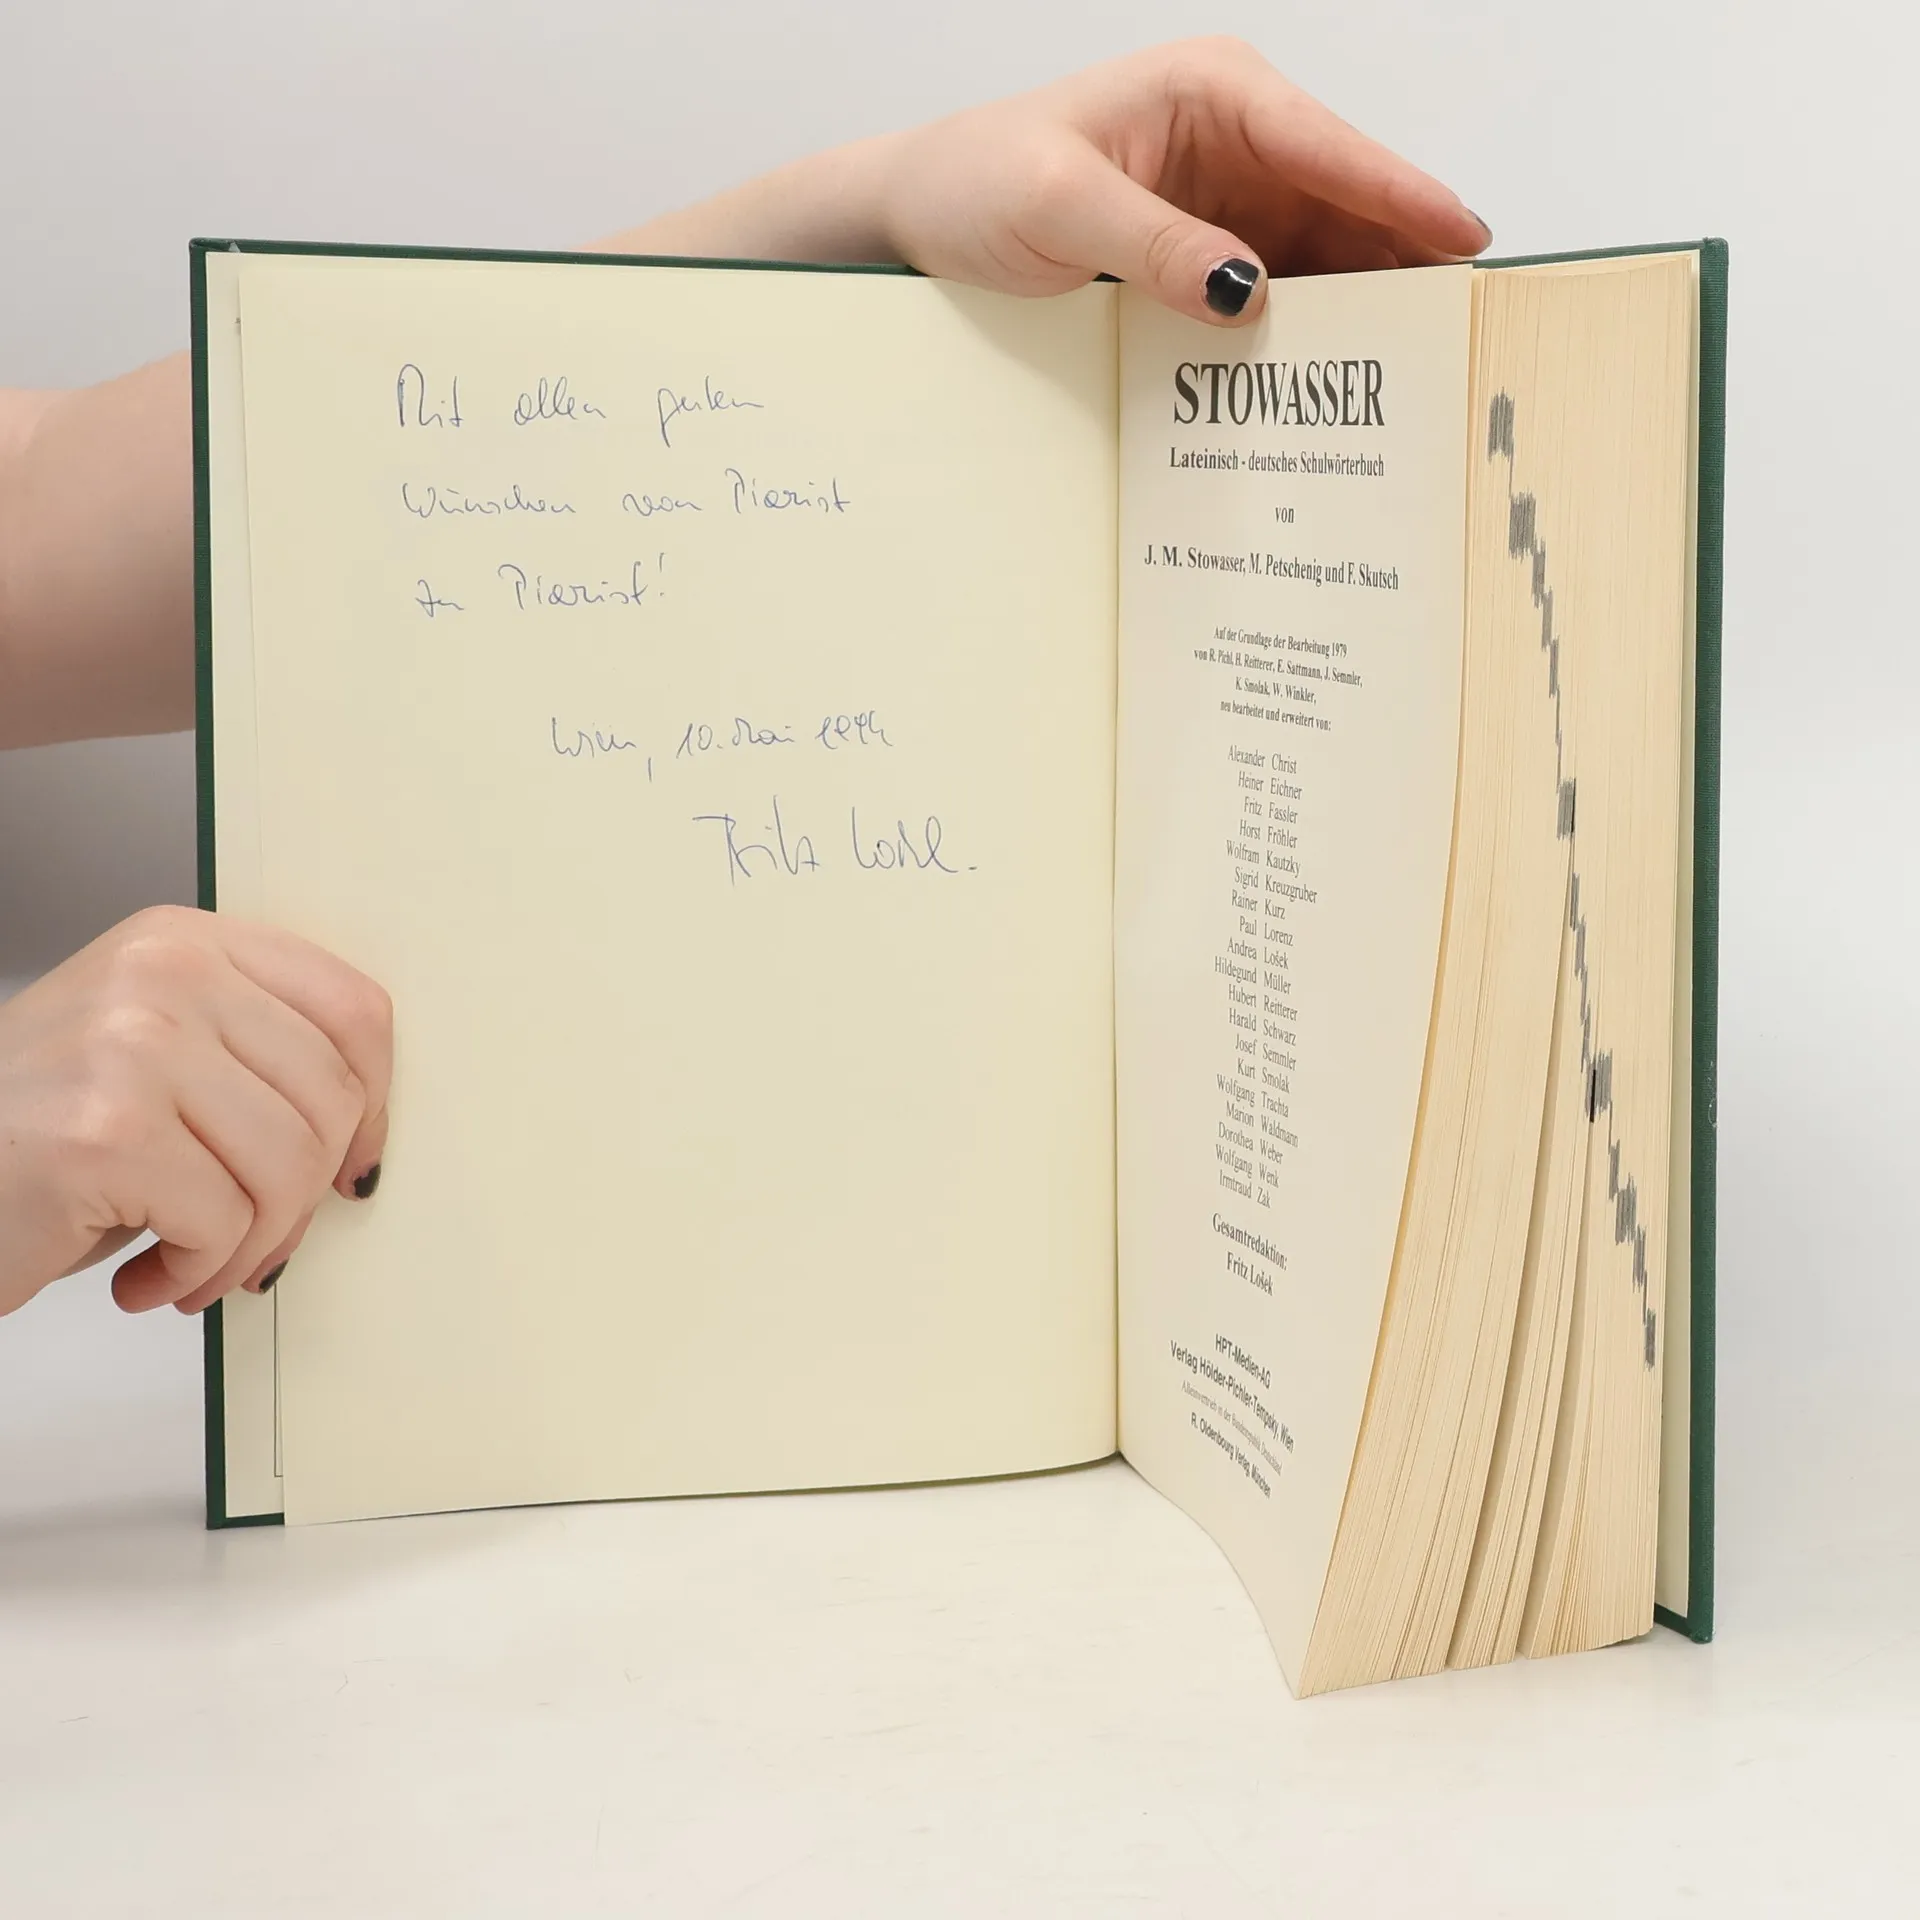 Mit allen guten
Wünschen von Piarist
zu Piarist!
Wien, 10. Mai 1994
Fritz Lošek.
STOWASSER
Lateinisch - deutsches Schulwörterbuch
von
J. M. Stowasser, M. Petschenig und F. Skutsch
Auf der Grundlage der Bearbeitung 1979
von R. Pichl, H. Reitterer, E. Sattmann, J. Semmler,
K. Smolak, W. Winkler,
neu bearbeitet und erweitert von:
Alexander Christ
Heiner Eichner
Fritz Fassler
Horst Fröhler
Wolfram Kautzky
Sigrid Kreuzgruber
Rainer Kurz
Paul Lorenz
Andrea Lošek
Hildegund Müller
Hubert Reitterer
Harald Schwarz
Josef Semmler
Kurt Smolak
Wolfgang Trachta
Marion Waldmann
Dorothea Weber
Wolfgang Wenk
Irmtraud Zak
Gesamtredaktion:
Fritz Lošek
HPT-Medien-AG
Verlag Hölder-Pichler-Tempsky, Wien
Alleinvertrieb in der Bundesrepublik Deutschland
R. Oldenbourg Verlag, München